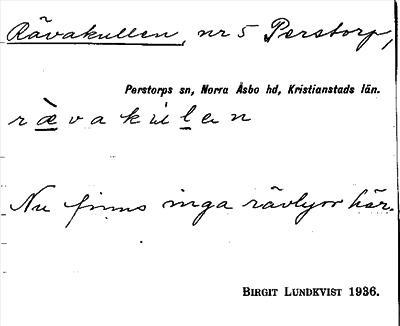 Rävakullen, nr 5 Perstorp,
Perstorps sn, Norra Åsbo hd, Kristianstads län.
r æ̀ v a k ú l e n
Nu finns inga rävlyor här.
BIRGIT LUNDKVIST 1936.